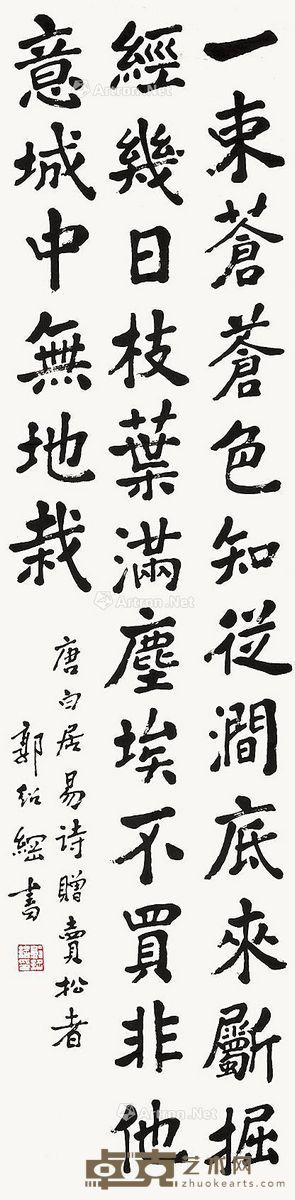 一束蒼蒼色知從澗底來斸掘
經幾日枝葉滿塵埃不買非他
意城中無地栽
唐白居易詩贈賣松者
郭紹綱書
Artron.Net
Artron.Net
Artron.Net
Artron.Net
卓克艺术网
www.zhuokearts.com